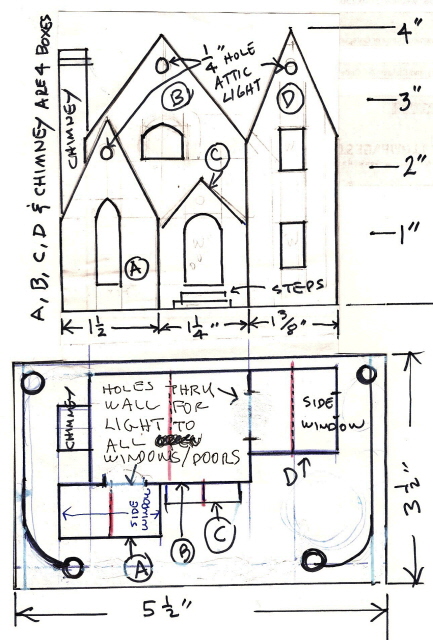 A, B, C, D & CHIMNEY ARE 4 BOXES
1/4" HOLE
ATTIC
LIGHT
4"
3"
2"
1"
CHIMNEY
B
D
C
A
STEPS
1 1/2
1 1/4"
1 3/8"
HOLES THRU
WALL FOR
LIGHT TO
ALL
WINDOWS/DOORS
CHIMNEY
SIDE
WINDOW
SIDE
WINDOW
D
C
B
A
3 1/2"
5 1/2"